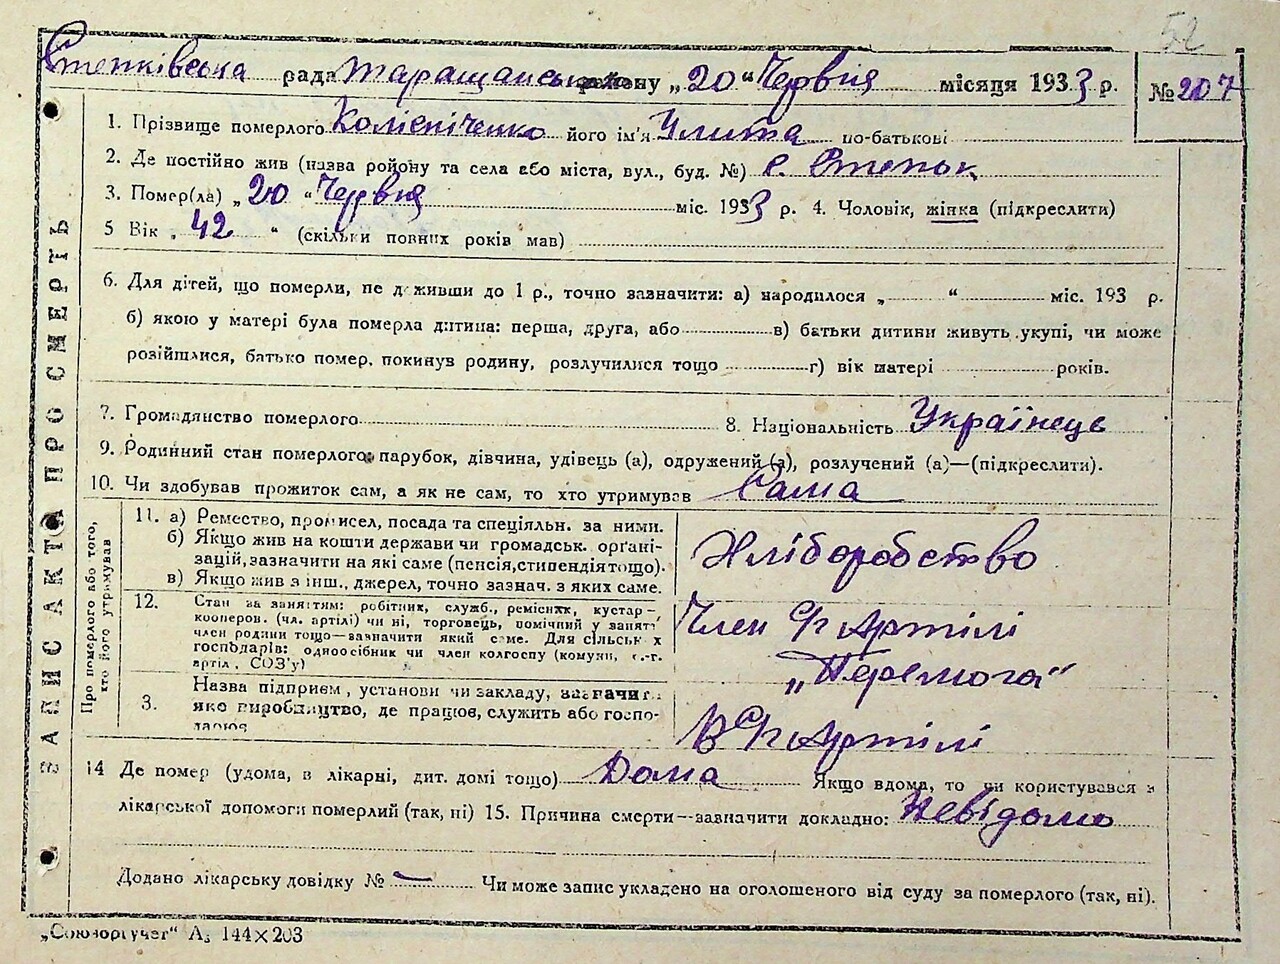 52
Степківська рада Таращанськ району „20" Червня місяця 1933 р. № 207
1. Прізвище померлого його ім'я Улита по-батькові
2. Де постійно жив (назва ройону та села або міста, вул., буд. №) с. Степок
3. Помер(ла) „20" Червня міс. 1933 р. 4. Чоловік, жінка (підкреслити)
5 Вік „42" (скільки повних років мав)
6. Для дітей, що померли, не доживши до 1 р., точно зазначити: а) народилося „ " міс. 193 р.
б) якою у матері була померла дитина: перша, друга, або в) батьки дитини живуть укупі, чи може
розійшлися, батько помер, покинув родину, розлучилися тощо г) вік матері років.
7. Громадянство померлого 8. Національність Українець
9. Родинний стан померлого: парубок, дівчина, удівець (а), одружений (а), розлучений (а)—(підкреслити).
10. Чи здобував прожиток сам, а як не сам, то хто утримував Сама
ЗАПИС АКТА ПРО СМЕРТЬ
Про померлого або того, хто його утримував
11. а) Ремество, промисел, посада та спеціяльн. за ними.
б) Якщо жив на кошти держави чи громадськ. орґані-
зацій, зазначити на які саме (пенсія, стипендія тощо).
в) Якщо жив з інш. джерел, точно зазнач. з яких саме.
Хліборобство
12. Стан за заняттям: робітник, служб., ремісник, кустар-
кооперов. (чл. артілі) чи ні, торговець, помічний у занятт
член родини тощо—зазначити який саме. Для сільськ х
господарів: одноосібник чи член колгоспу (комуни, с.-г.
артіл, СОЗ'у)
Член Артілі
„Перемога"
3. Назва підприєм, установи чи закладу, зазначити
яке виробництво, де працює, служить або госпо-
дарює
В Артілі
14 Де помер (удома, в лікарні, дит. домі тощо) Дома Якщо вдома, то чи користувався з
лікарської допомоги померлий (так, ні) 15. Причина смерти—зазначити докладно: Невідомо
Додано лікарську довідку № — Чи може запис укладено на оголошеного від суду за померлого (так, ні).
„Союзоргучет" А5 144×203